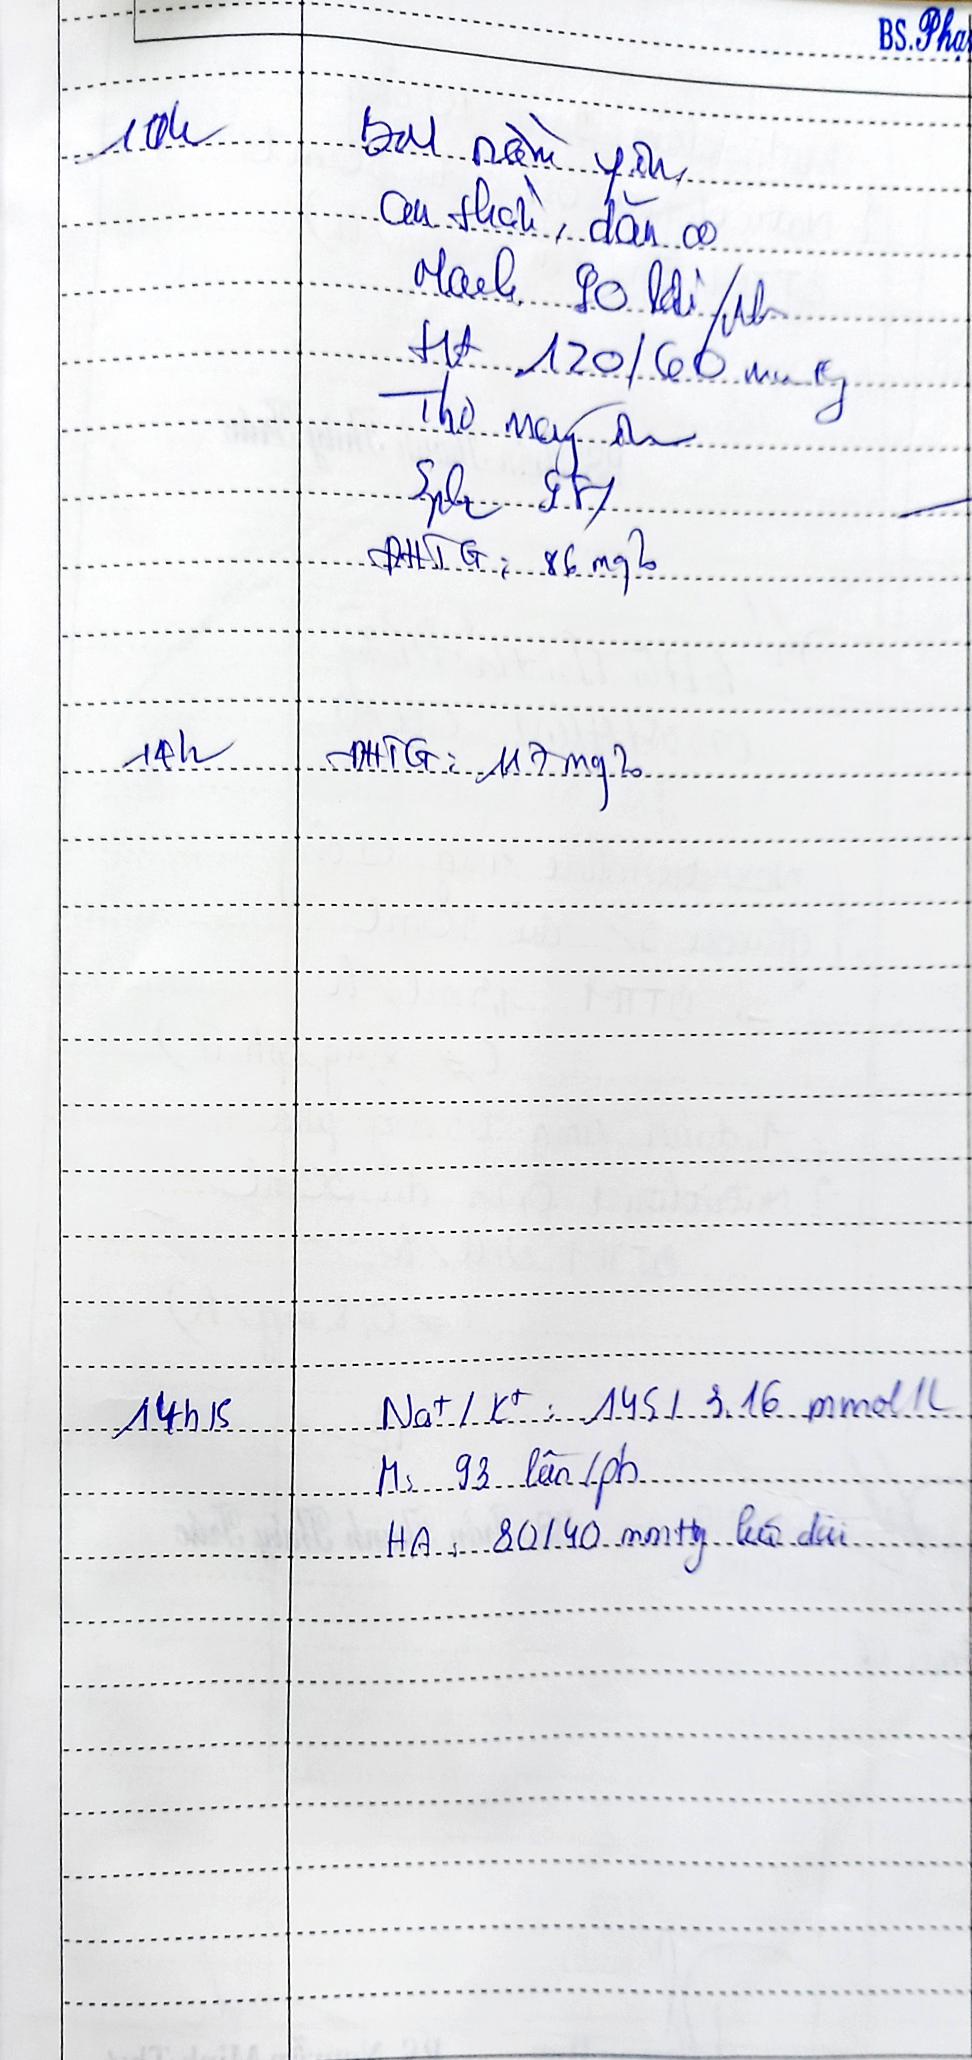 BS. Phạ
10h
BN nằm yên,
an thần, dãn cơ
Mạch 90 lần/ph
HA 120/60 mmHg
Thở máy
SpO2 98%
ĐHTG: 86 mg%
14h
ĐHTG: 117 mg%
14h15
Na+/K+: 145/3.16 mmol/L
M: 93 lần/ph
HA: 80/40 mmHg